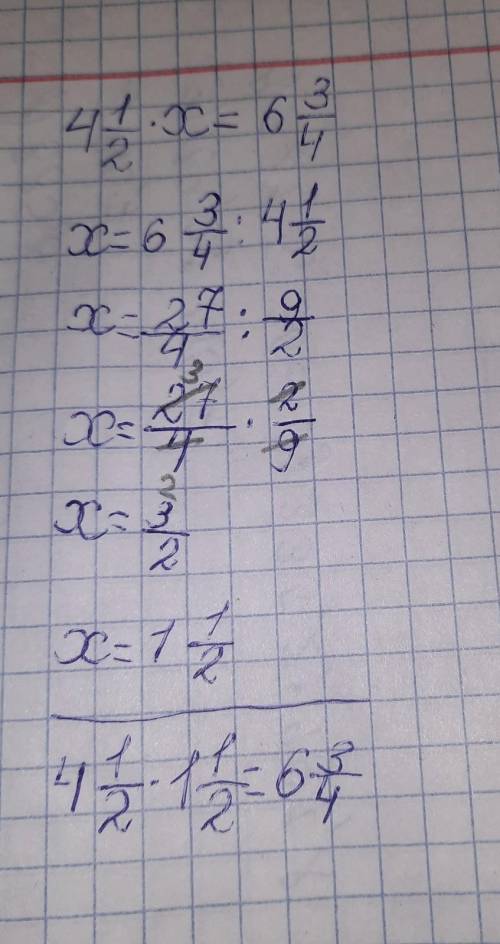 4 1/2 · x = 6 3/4
x = 6 3/4 : 4 1/2
x = 27/4 : 9/2
x = 27/4 · 2/9
3
2
x = 3/2
x = 1 1/2
4 1/2 · 1 1/2 = 6 3/4